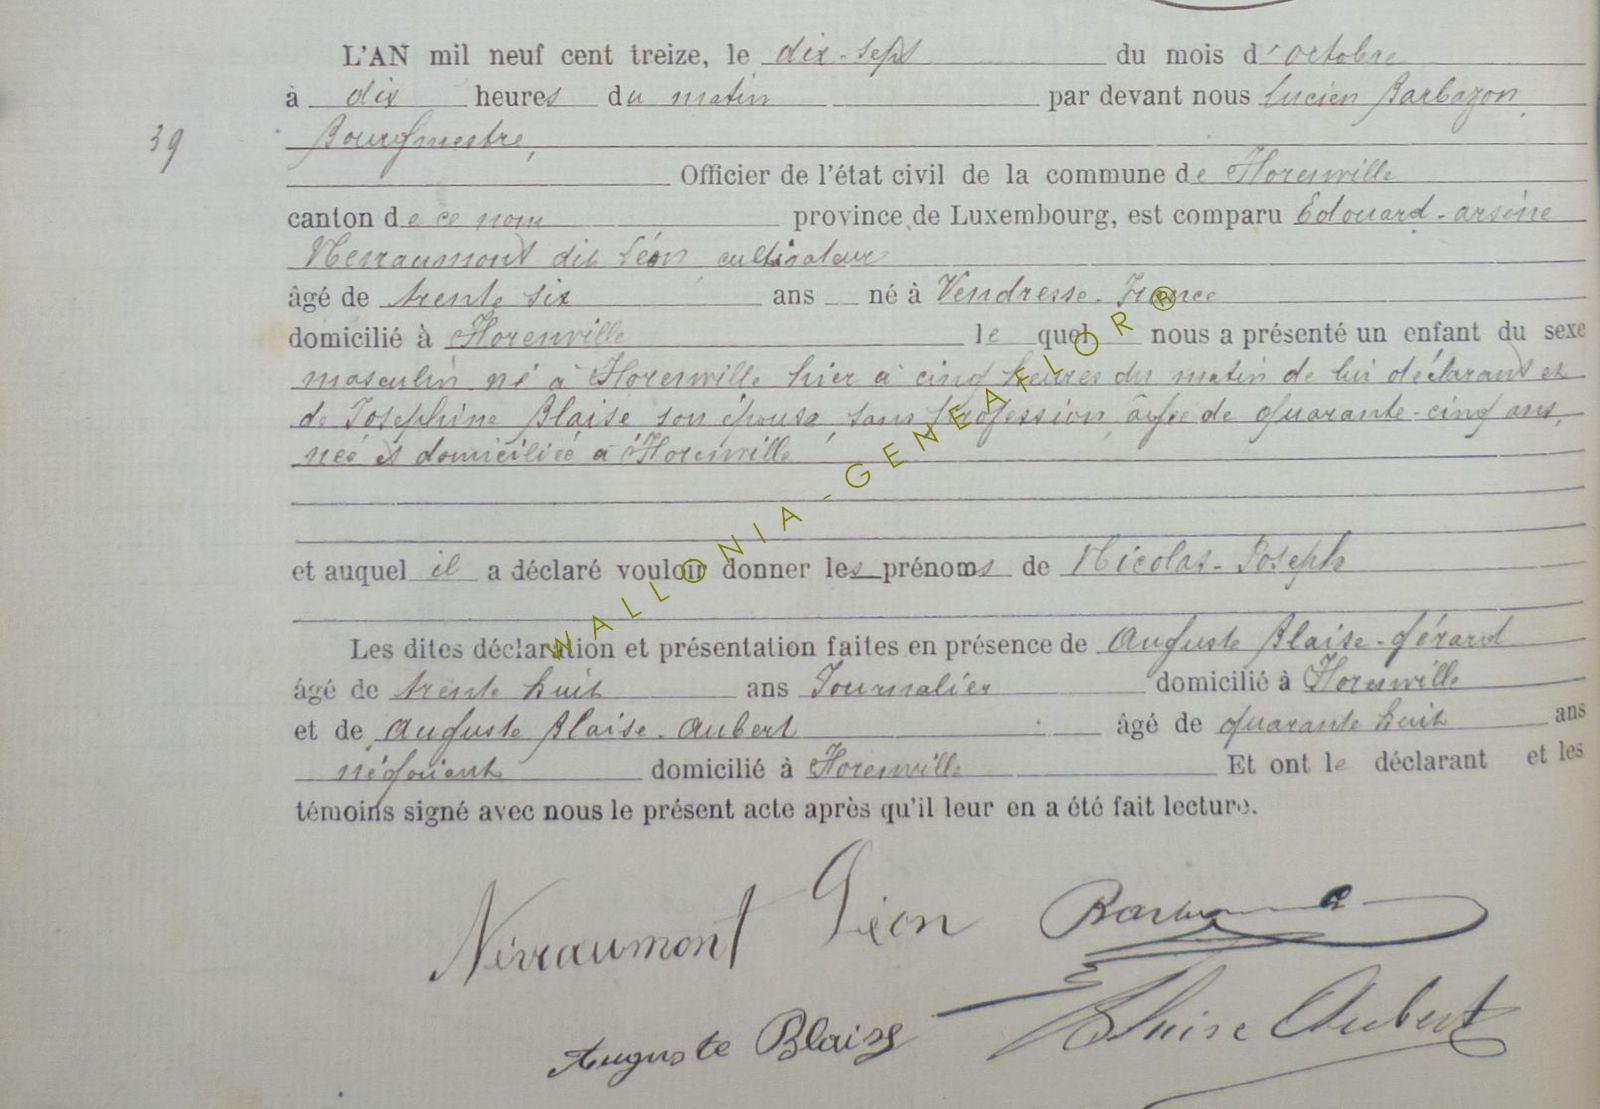 L'AN mil neuf cent treize, le dix-sept du mois d'octobre
à dix heures du matin par devant nous Lucien Barbazon
39 Bourgmestre,
Officier de l'état civil de la commune de Florenville
canton de ce nom province de Luxembourg, est comparu Edouard-arsène
Nerraumont dit Léon cultivateur
âgé de trente six ans né à Vendresse. France
domicilié à Florenville le quel nous a présenté un enfant du sexe
masculin né à Florenville hier à cinq heures du matin de lui déclarant et
de Joséphine Blaise son épouse, sans profession, âgée de quarante-cinq ans,
née et domiciliée à Florenville
et auquel il a déclaré vouloir donner les prénoms de Nicolas-Joseph
Les dites déclaration et présentation faites en présence de Auguste Blaise-Gérard
âgé de trente huit ans Journalier domicilié à Florenville
et de Auguste Blaise-Aubert âgé de quarante huit ans
négociant domicilié à Florenville Et ont le déclarant et les
témoins signé avec nous le présent acte après qu'il leur en a été fait lecture.
Nerraumont Léon
Auguste Blaise Blaise Aubert
WALLONIA-GENEAFLOR®